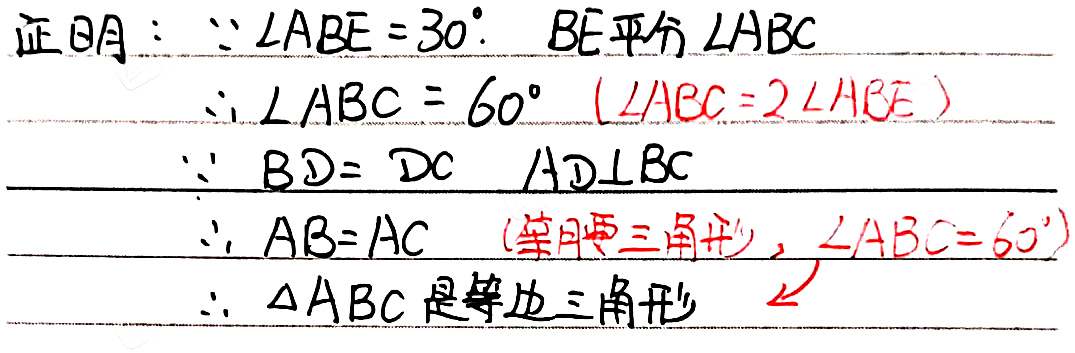 证明：∵∠ABE=30°. BE平分∠ABC
∴∠ABC=60° (∠ABC=2∠ABE)
∵ BD=DC AD⊥BC
∴ AB=AC (等腰三角形，∠ABC=60°)
∴ △ABC是等边三角形